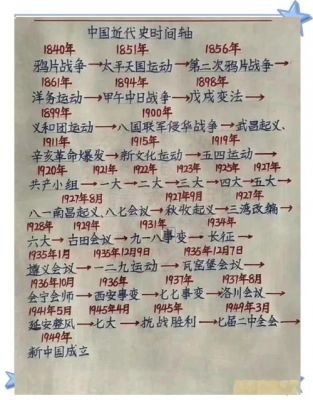 中国近代史时间轴
1840年 1851年 1856年
鸦片战争→太平天国运动→第二次鸦片战争→
1861年 1894年 1898年
洋务运动→甲午中日战争→戊戌变法→
1899年 1900年
义和团运动→八国联军侵华战争→武昌起义、
1911年 1915年 1919年
辛亥革命爆发→新文化运动→五四运动→
1920年 1921年 1922年 1923年 1925年 1927年
共产小组→一大→二大→三大→四大→五大→
1927年8月 1927年9月
八一南昌起义、八七会议→秋收起义→三湾改编→
1928年 1929年 1931年 1934年
六大→古田会议→九一八事变→长征→
1935年1月 1935年12月9日 1935年12月7日
遵义会议→一二九运动→瓦窑堡会议→
1936年10月 1936年 1937年 1937年8月
会宁会师→西安事变→七七事变→洛川会议→
1941年5月 1945年4月 1945年 1949年3月
延安整风→七大→抗战胜利→七届二中全会→
1949年
新中国成立